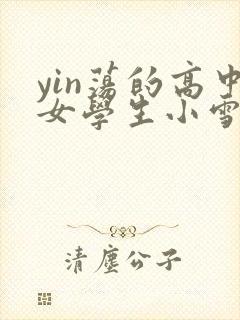 yin蕩的高中
女學生小雪
清塵公子